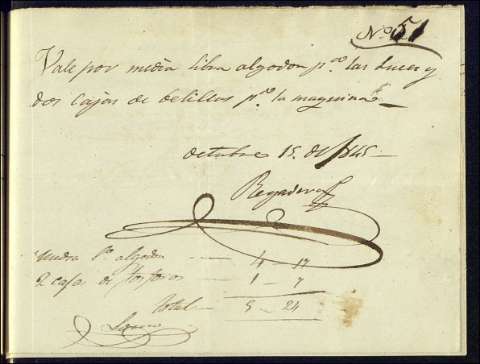 Nº 51
Vale por media libra algodon pª las luces y
dos cajas de belillos pª la maquina
octubre 15 de 1845
Regadera
media lª algodon 4 - 17
2 cajas de fosforos 1 - 7
total 5 - 24